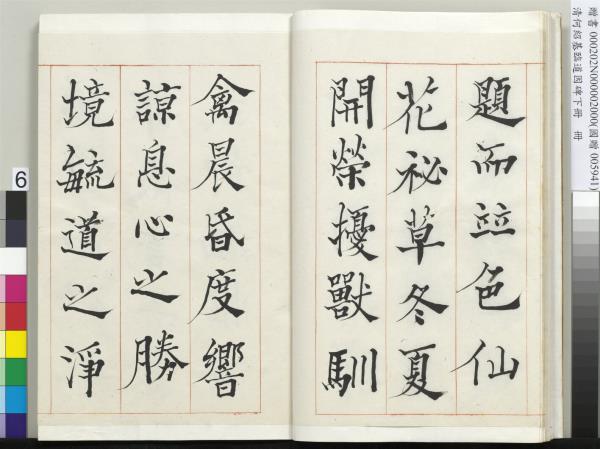 贈書 000202N000002000(國贈 005941)
清何紹基臨道因碑下冊 冊
題而竝色仙
花祕草冬夏
開榮擾獸馴
禽晨昏度響
諒息心之勝
境毓道之淨
6